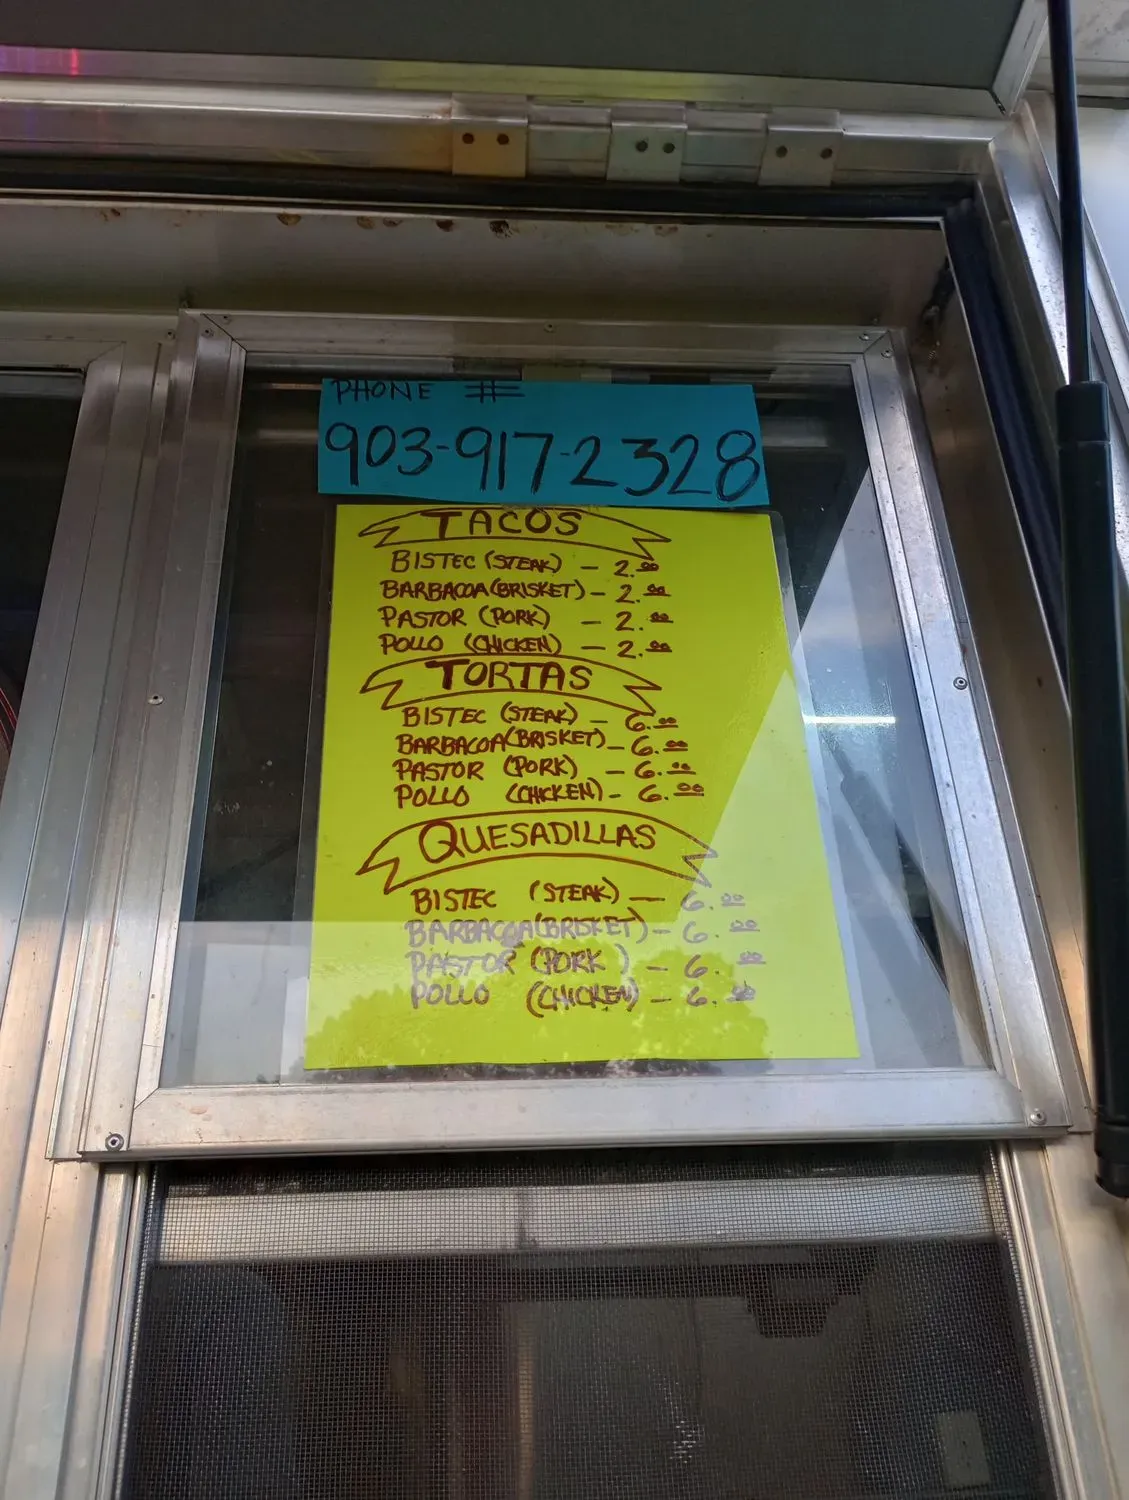 PHONE #
903-917-2328
TACOS
BISTEC (STEAK) - 2.00
BARBACOA (BRISKET) - 2.00
PASTOR (PORK) - 2.00
POLLO (CHICKEN) - 2.00
TORTAS
BISTEC (STEAK) - 6.00
BARBACOA (BRISKET) - 6.00
PASTOR (PORK) - 6.00
POLLO (CHICKEN) - 6.00
QUESADILLAS
BISTEC (STEAK) - 6.00
BARBACOA (BRISKET) - 6.00
PASTOR (PORK) - 6.00
POLLO (CHICKEN) - 6.00